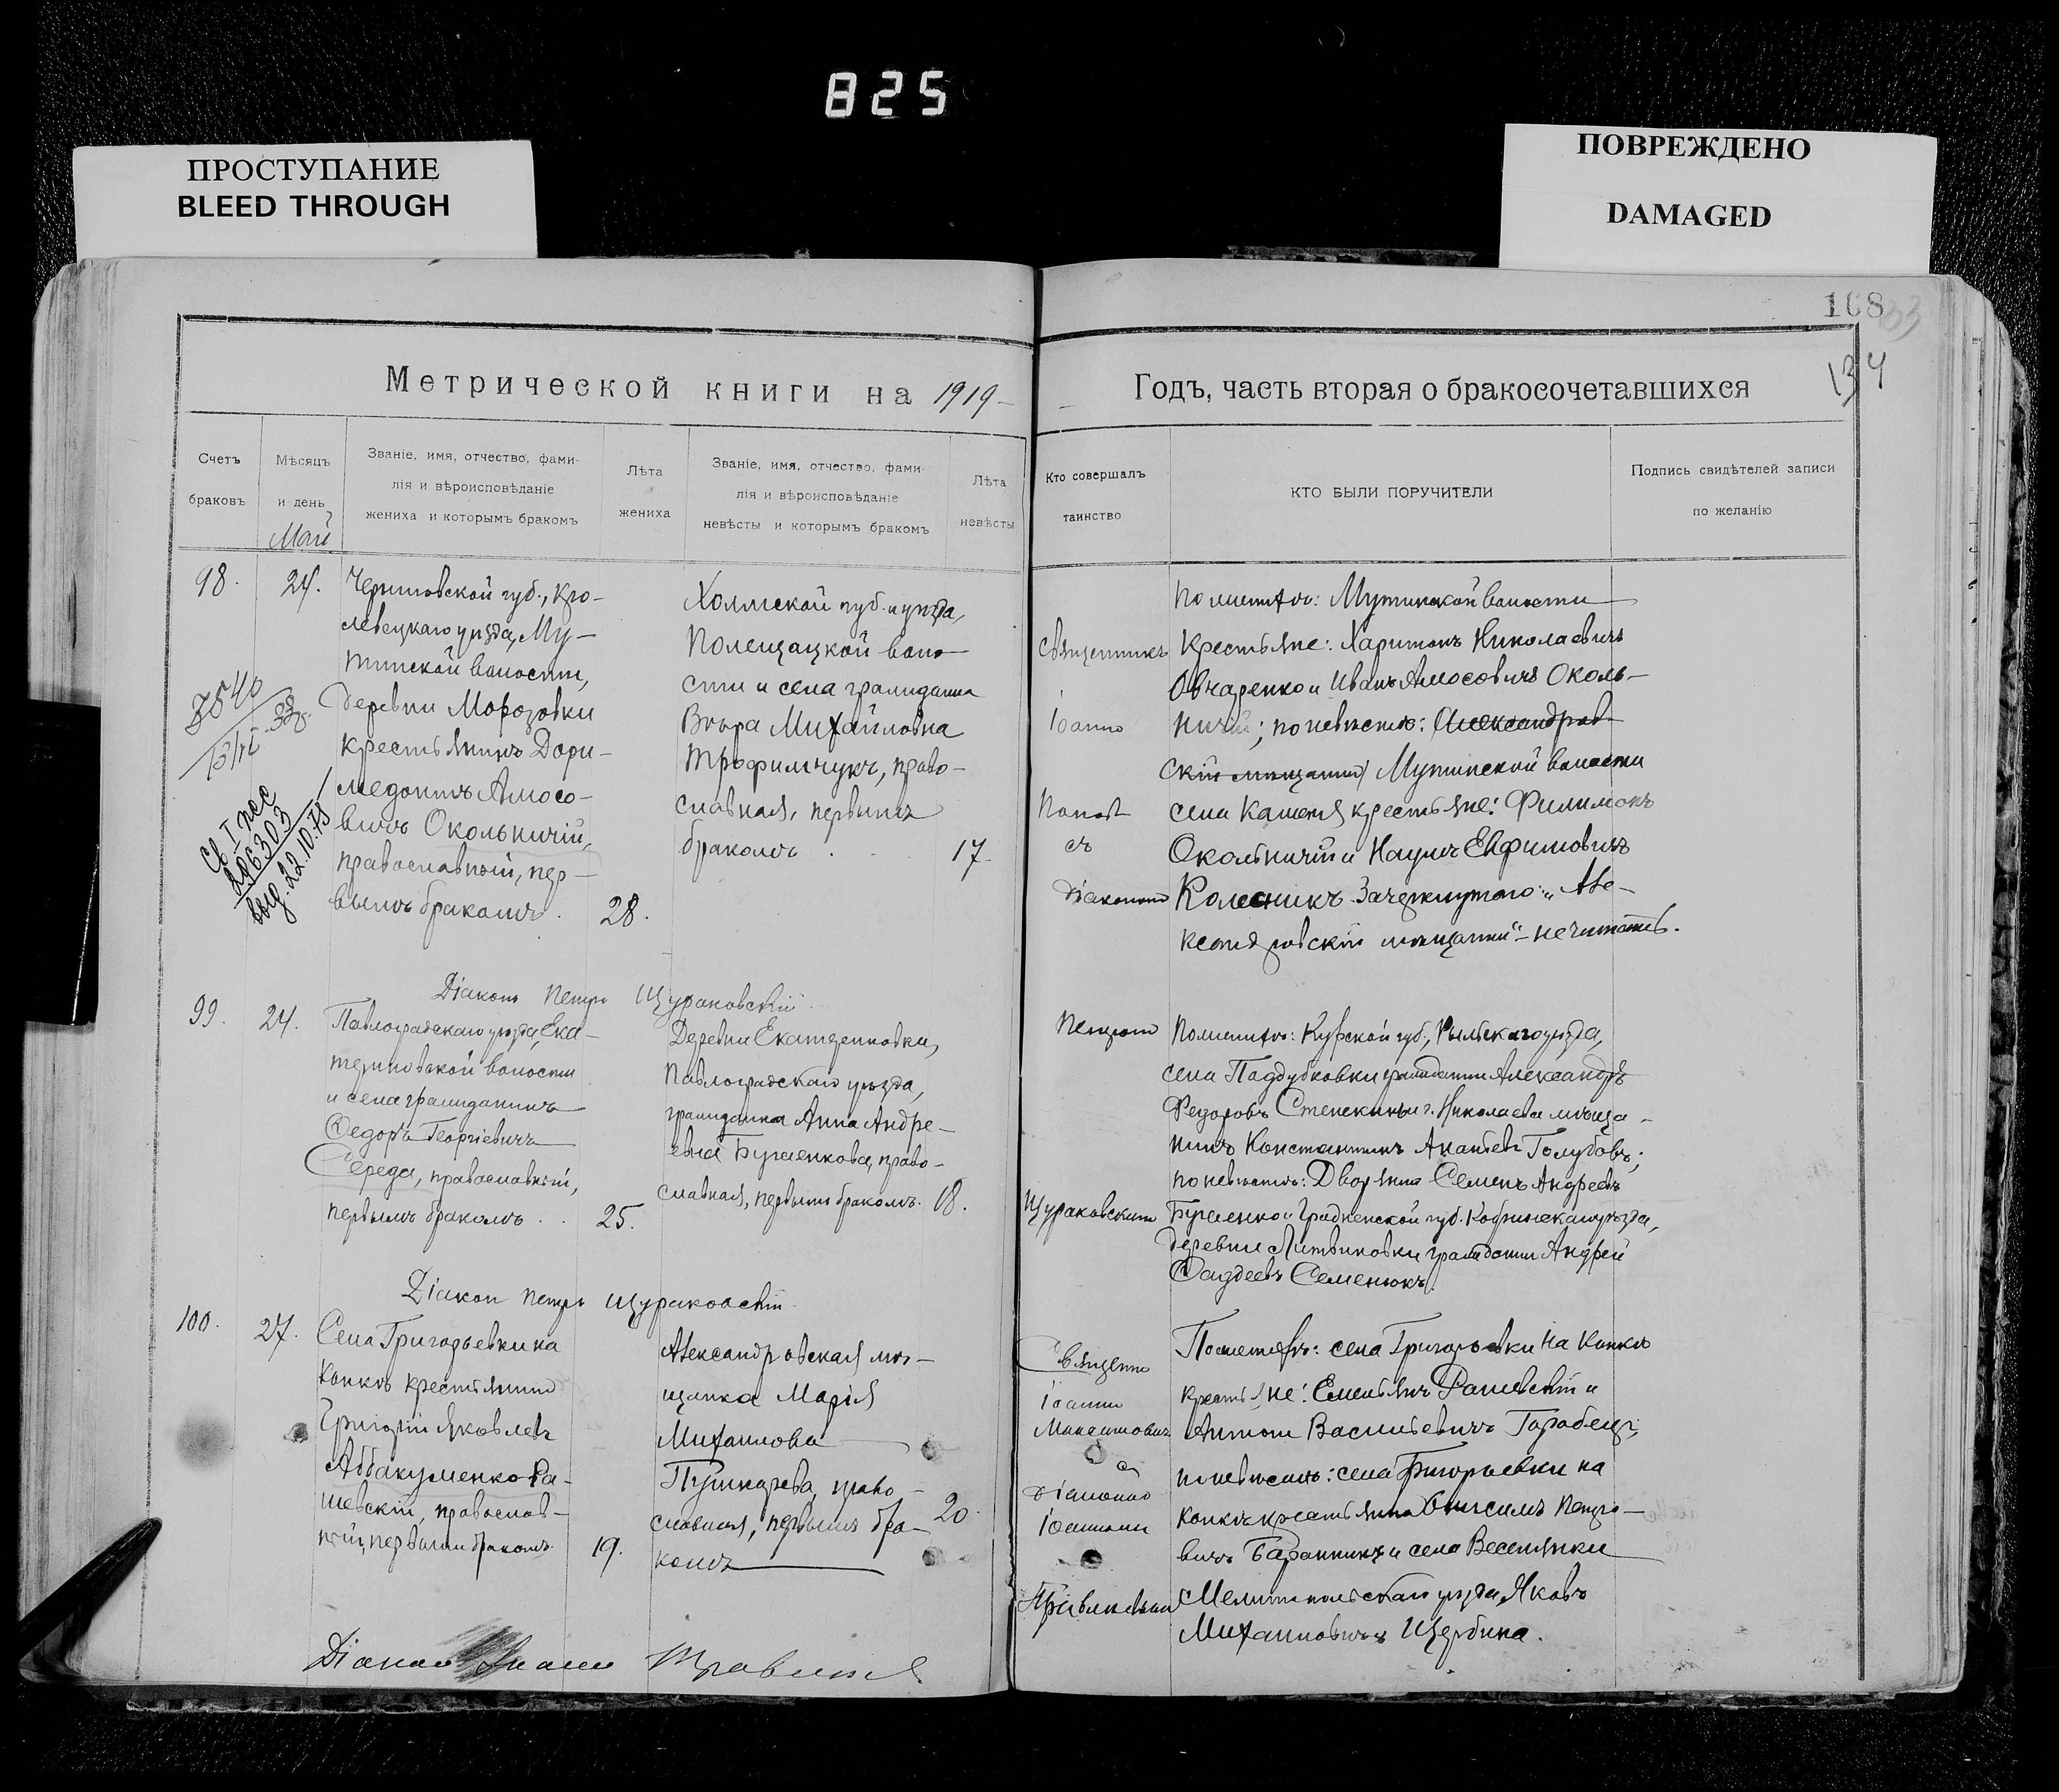 825
ПРОСТУПАНИЕ
BLEED THROUGH
ПОВРЕЖДЕНО
DAMAGED
108
33
134
Метрической книги на 1919
Годъ, часть вторая о бракосочетавшихся
Счетъ
браковъ
Мѣсяцъ
и день
Май
Званіе, имя, отчество, фами-
лія и вѣроисповѣданіе
жениха и которымъ бракомъ
Лѣта
жениха
Званіе, имя, отчество, фами-
лія и вѣроисповѣданіе
невѣсты и которымъ бракомъ
Лѣта
невѣсты
Кто совершалъ
таинство
КТО БЫЛИ ПОРУЧИТЕЛИ
Подпись свидѣтелей записи
по желанію
98.
24.
Черниговской губ., Кро-
левецкаго уѣзда, Му-
тинской волости,
деревни Морозовки
крестьянинъ Дори-
медонтъ Амосо-
вичъ Окольничій,
православный, пер-
вымъ бракомъ.
28.
Холмской губ. и уѣзда,
Полещацкой воло-
сти и села гражданка
Вѣра Михайловна
Трофимчукъ, право-
славная, первымъ
бракомъ
17.
Священникъ
Іоанно
Попов
съ
діакономъ
По женихѣ: Мутинской волости
крестьяне: Харитонъ Николаевичъ
Овчаренко и Иванъ Амосовичъ Околь-
ничій; по невѣстѣ: Александров-
скій мѣщанинъ Мутинской волости
села Каменя крестьяне: Филимонъ
Окольничій и Наумъ Евфимовичъ
Колесникъ. Зачеркнутого: "Але-
ксандровскій мѣщанинъ" - не читать.
3540
Св I пос
206303
выд. 22.10.75
Діаконъ Петръ Щураковскій.
99.
24.
Павлоградскаго уѣзда, Ека-
териновской волости
и села гражданинъ
Федоръ Георгіевичъ
Середа, православный,
первымъ бракомъ
25.
Деревни Екатериновки,
Павлоградскаго уѣзда,
гражданка Анна Андре-
евна Бугаенкова, право-
славная, первымъ бракомъ.
18.
Петромъ
Щураковскимъ
По женихѣ: Курской губ., Рыльскаго уѣзда,
села Поддубковки гражданинъ Александръ
Федоровъ Стенскинъ и г. Николаева мѣща-
нинъ Константинъ Ананьевъ Голубовъ;
по невѣстѣ: Дворянинъ Семенъ Андреевъ
Бугаенко и Гродненской губ. Кобринскаго уѣзда,
деревни Литвиновки гражданинъ Андрей
Фаддеевъ Семенюкъ.
Діакон Петръ Щураковскій.
100.
27.
Села Григорьевки на
Конкѣ крестьянинъ
Григорій Яковлевъ
Аббакуменко-Ра-
шевскій, православ-
ный, первымъ бракомъ.
19.
Александровская мѣ-
щанка Марія
Михаилова
Пушкарева, право-
славная, первымъ бра-
комъ
20.
Священ
Іоанно
Максимович
съ
діакономъ
Іоанномъ
По женихѣ: села Григорьевки на Конкѣ
крестьяне: Емельянъ Рашевскій и
Антонъ Васильевичъ Гарабецъ;
по невѣстѣ: села Григорьевки на
Конкѣ крестьянинъ Онисимъ Петро-
вичъ Баранникъ и села Веселянки
Мелитопольскаго уѣзда, Яковъ
Михаиловичъ Щербина.
Діакон Іоанн